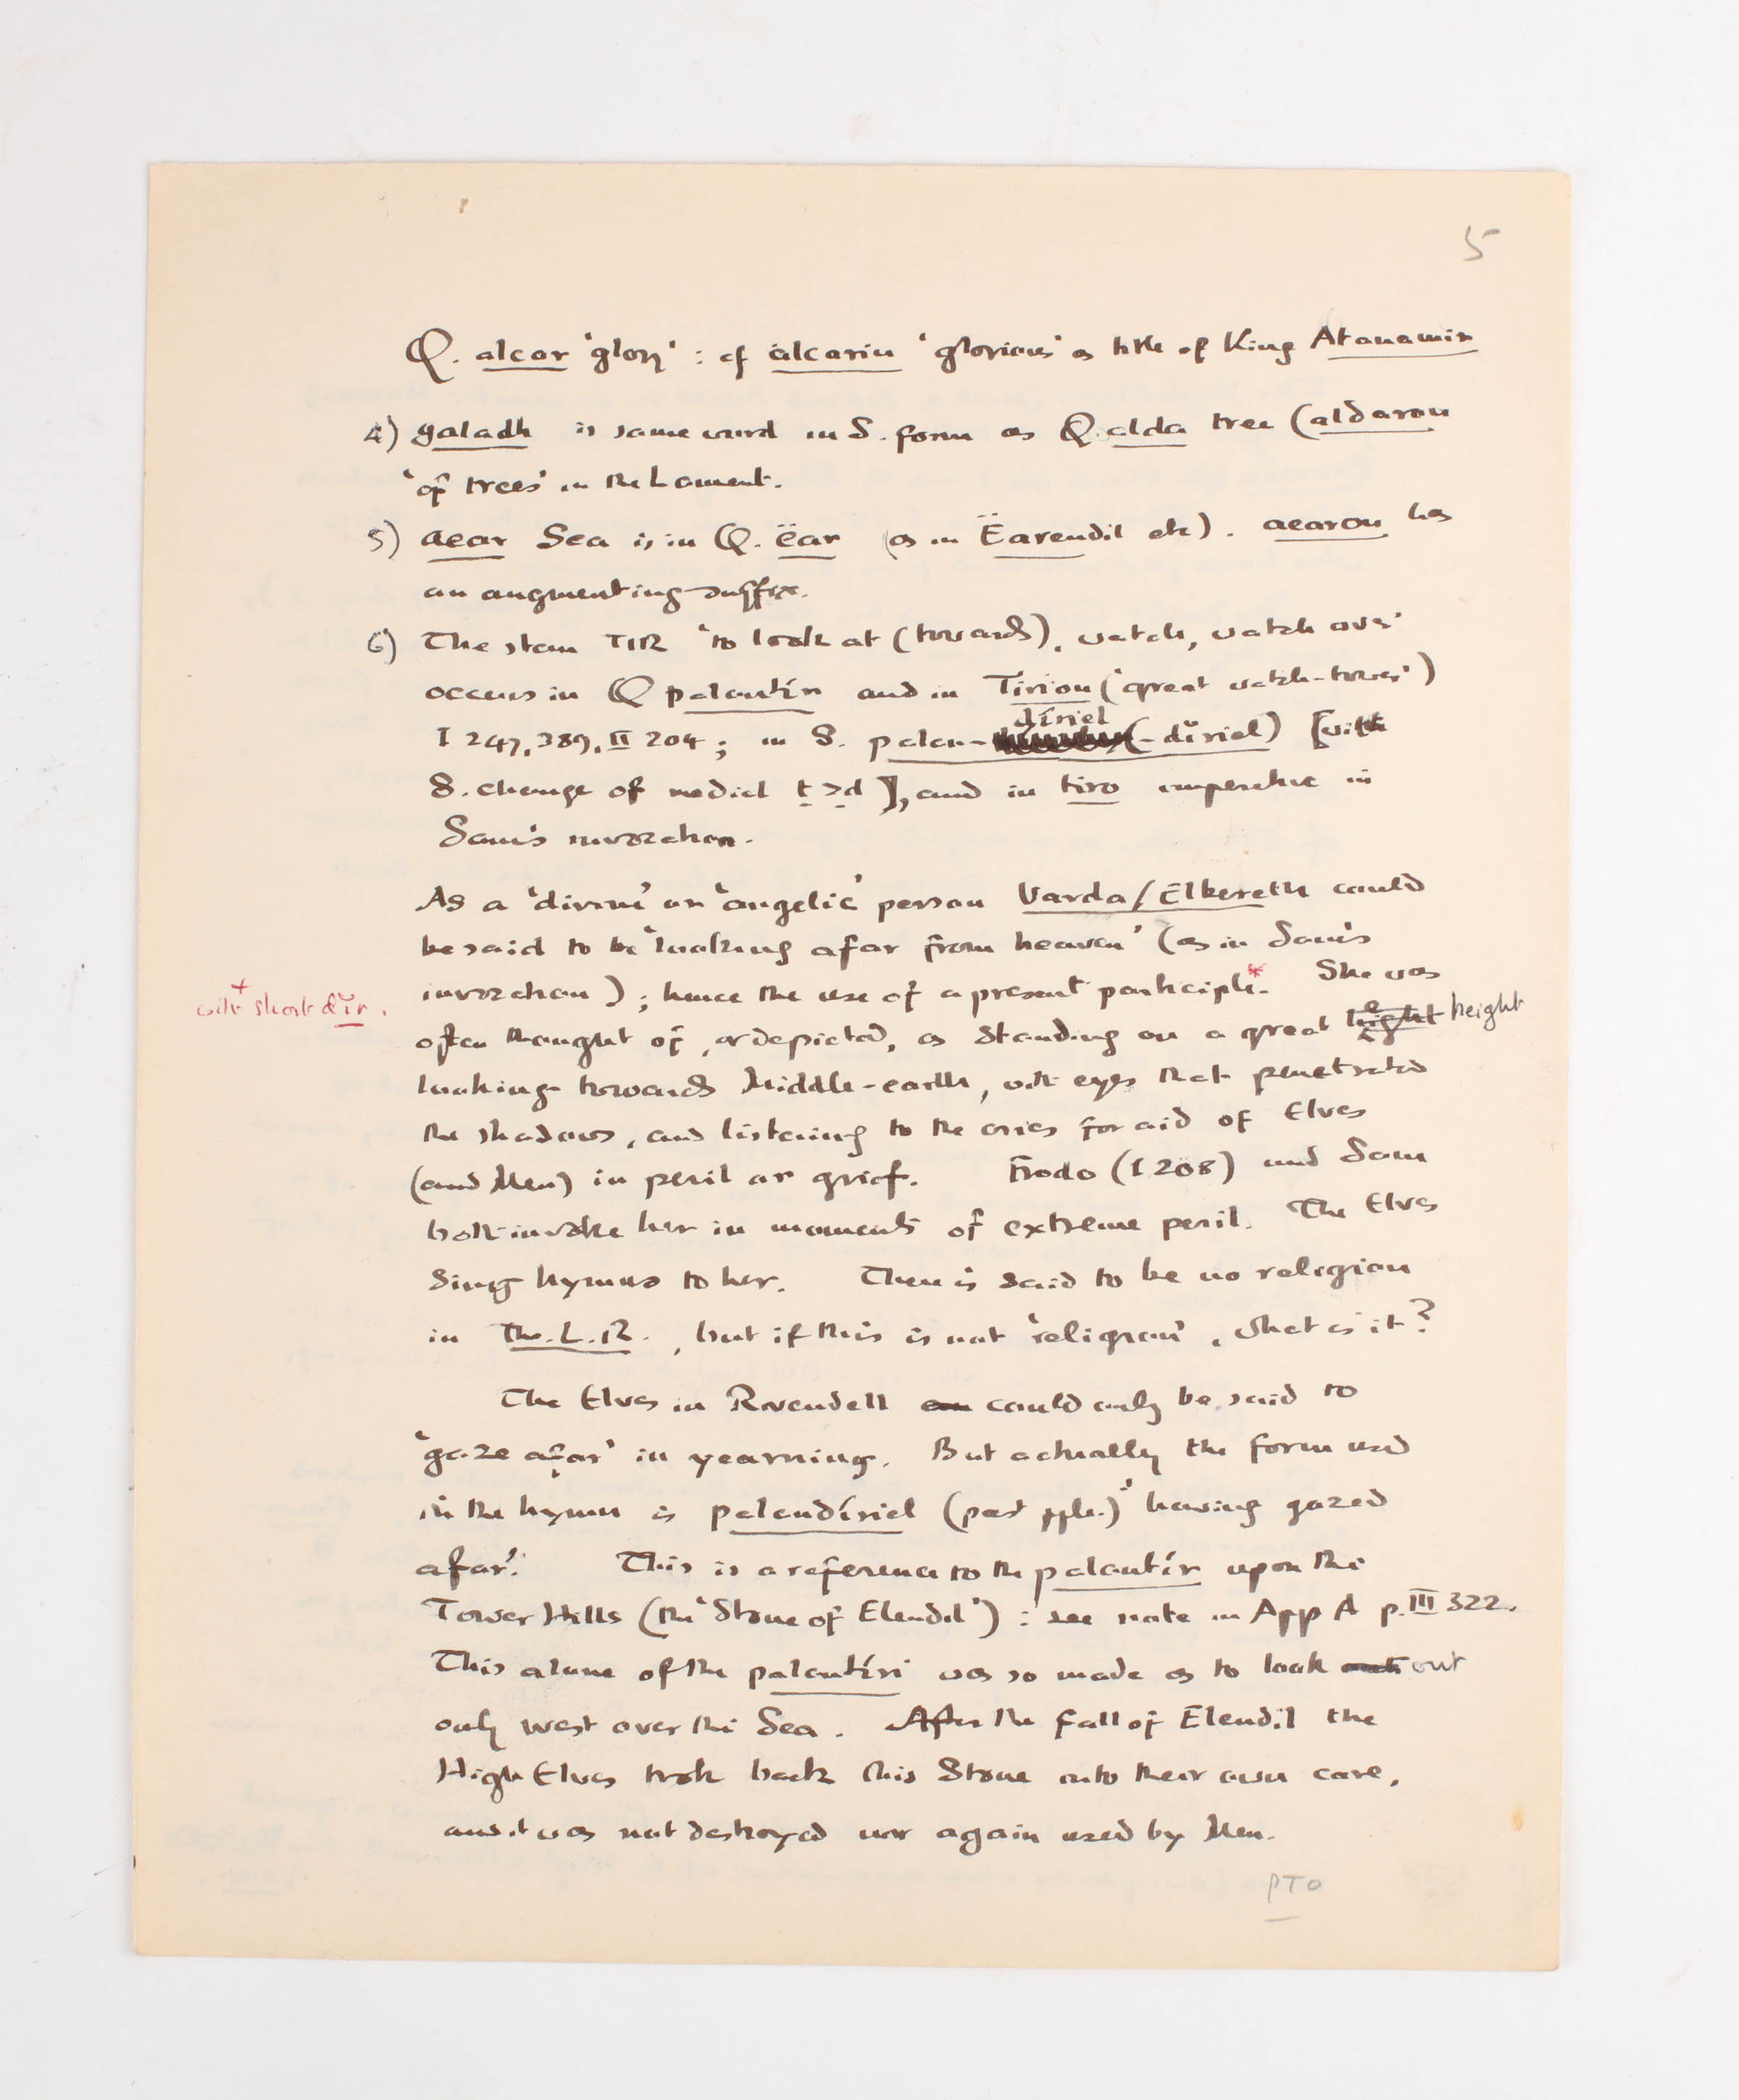 5
Q. alcar 'glory' : cf alcarin 'glorious' as title of King Atanamir
4) galadh is same word in S. form as Q. alda tree (aldaron
'of trees' in the Lament.
5) aear Sea is in Q. ëar (as in Ëarendil etc). aearon has
an augmenting suffix.
6) The stem TIR 'to look at (towards), watch, watch over'
occurs in Q palantír and in Tirion ('great watch-tower')
díriel
I 247, 389, II 204 ; in S. palan- (-dĭriel) [with
S. change of medial t > d], and in tiro imperative in
Sam's invocation.
As a 'divine' or 'angelic' person Varda / Elbereth could
be said to be 'looking afar from heaven' (as in Sam's
invocation) ; hence the use of a present participle.* She was
+ with short dĭr.
often thought of, or depicted, as standing on a great height height
looking towards Middle-earth, with eyes that penetrated
the shadows, and listening to the cries for aid of Elves
(and Men) in peril or grief. Frodo (I 208) and Sam
both invoke her in moments of extreme peril. The Elves
sing hymns to her. There is said to be no religion
in The.L.R. , but if this is not 'religion', what is it?
The Elves in Rivendell could only be said to
'gaze afar' in yearning. But actually the form used
in the hymn is palandíriel (past pple.) 'having gazed
afar'. This is a reference to the palantír upon the
Tower Hills (the 'Stone of Elendil') : see note in App A p. III 322.
This alone of the palantíri was so made as to look out
only west over the Sea. After the fall of Elendil the
High Elves took back this Stone into their own care,
and it was not destroyed nor again used by Men.
PTO